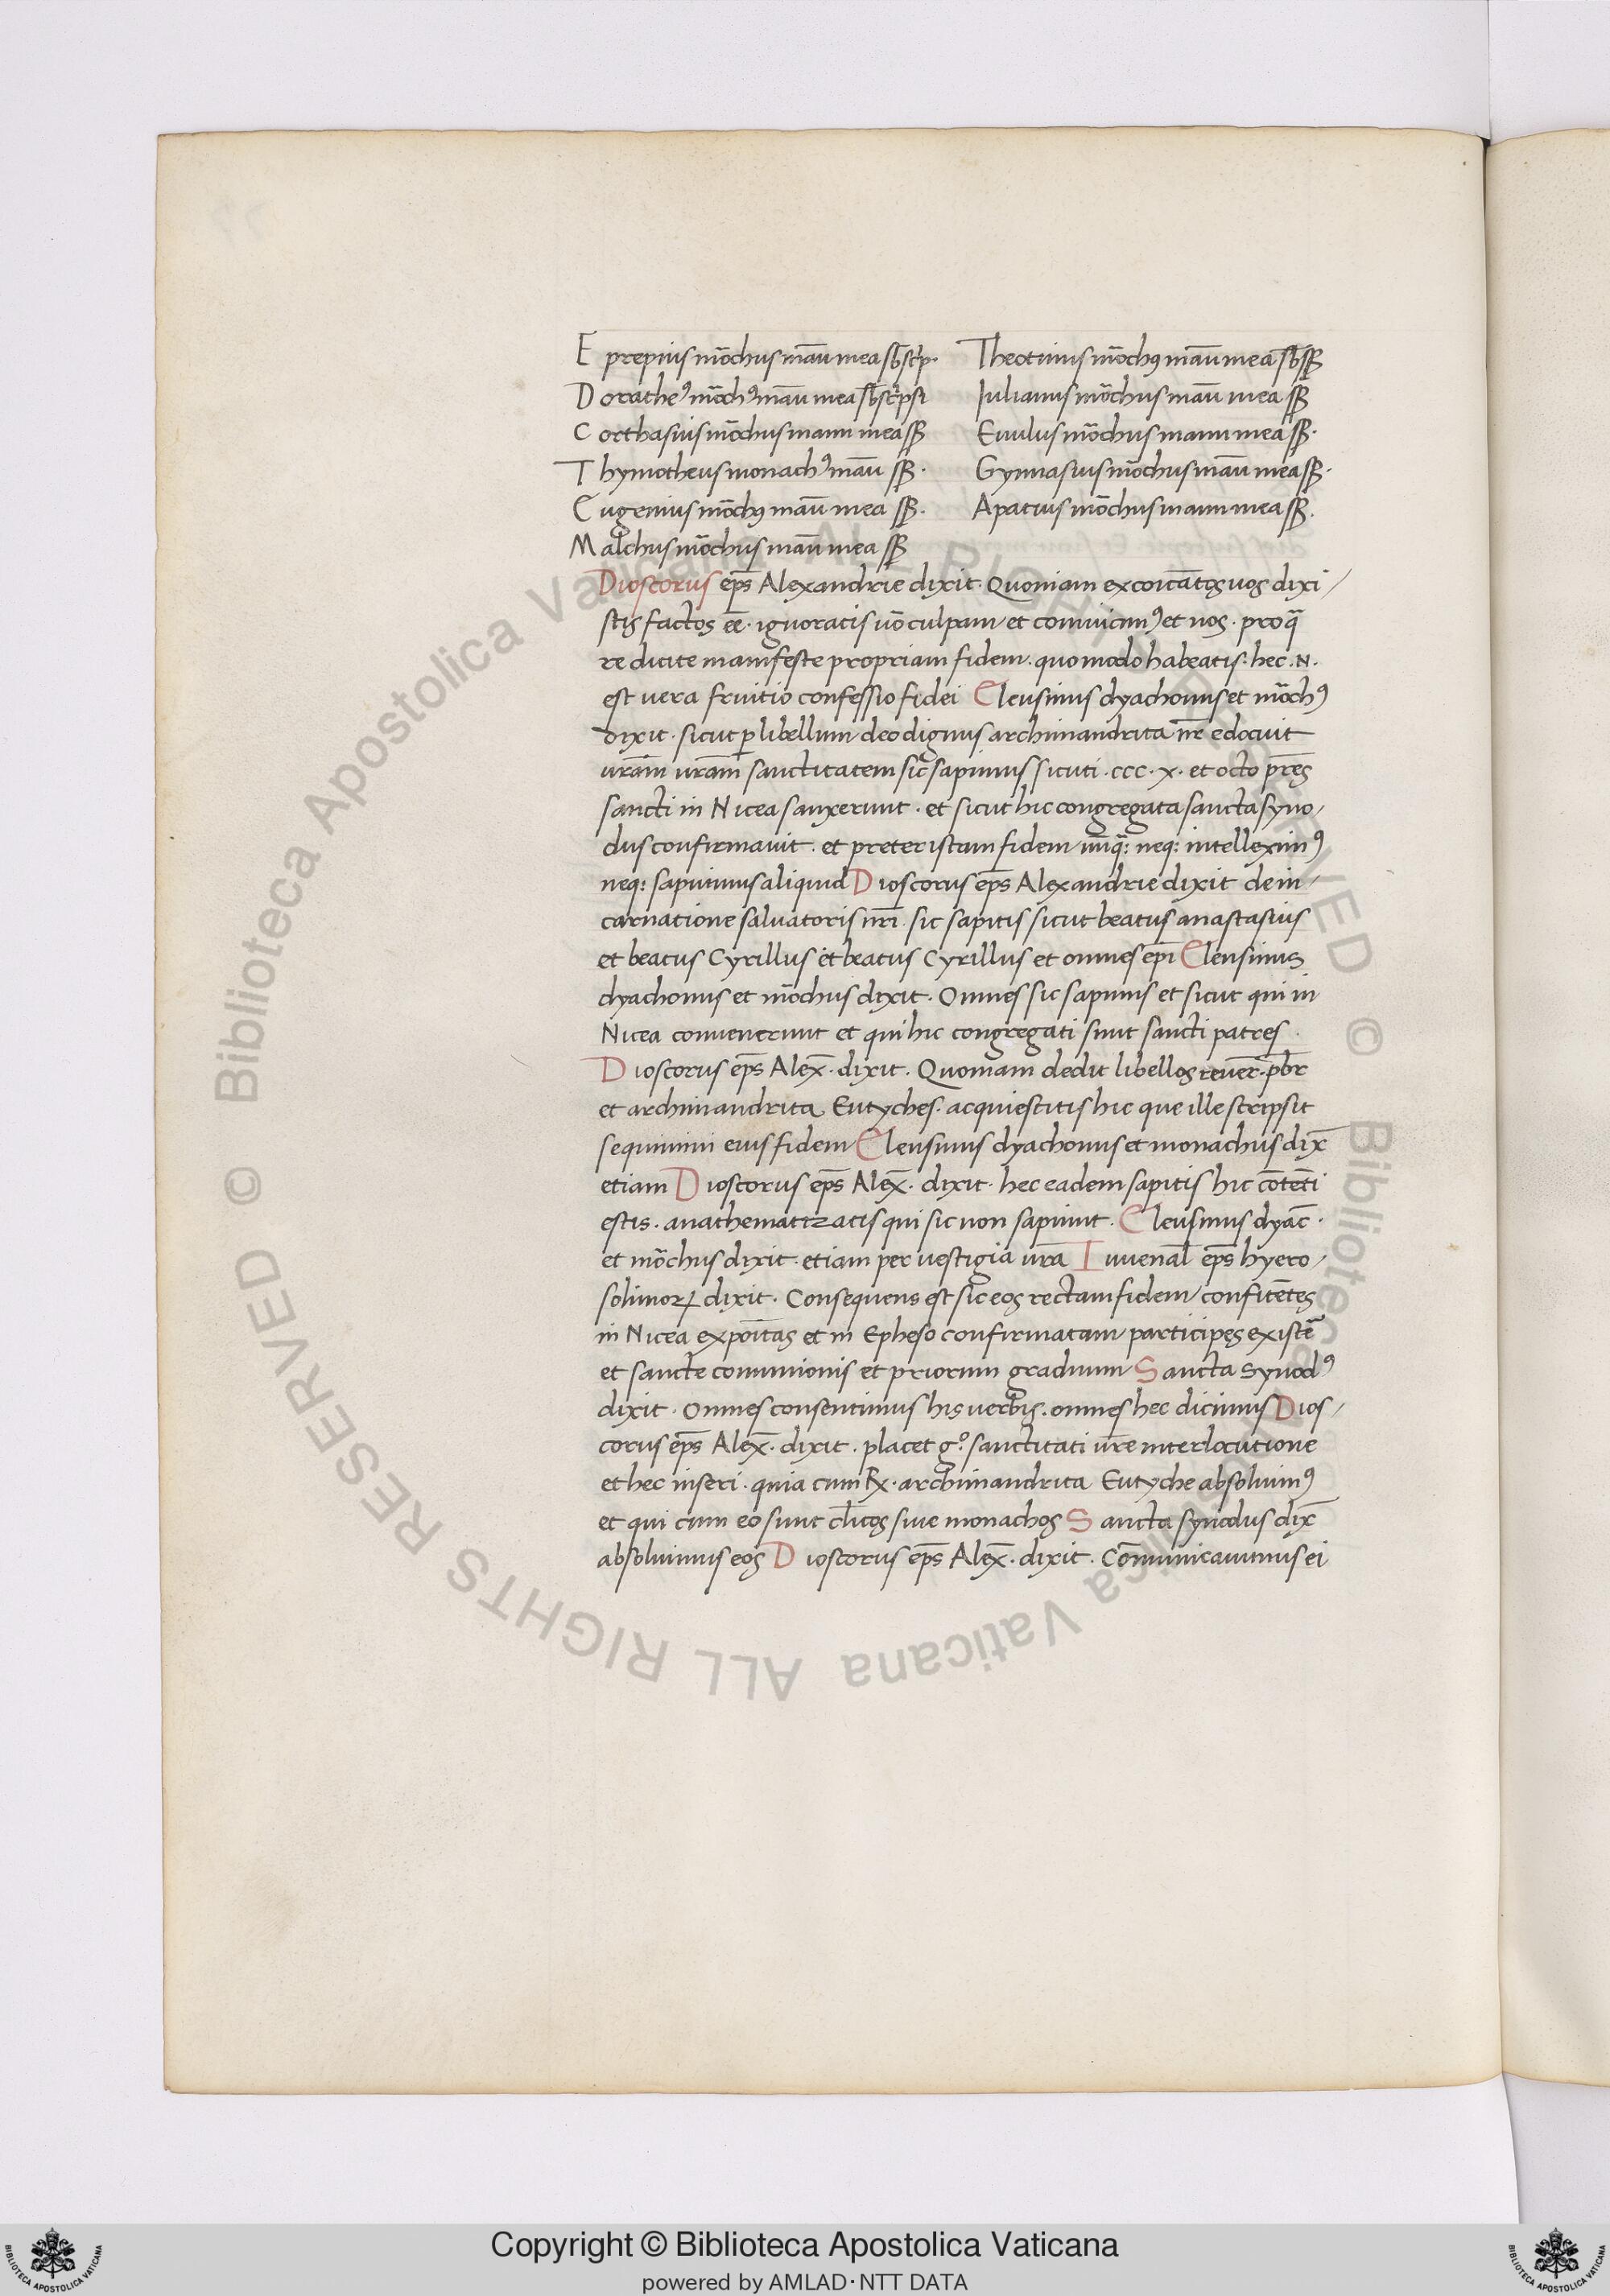 E prepius mo̅chus manu̅ mea sb̅scrip.
D oratheꝰ mo̅chꝰ manu̅ mea sb̅scripsi
C orthasius mo̅chus manu mea
T hymotheus monachꝰ manu̅
E ugenius mo̅chꝰ manu̅ mea
M alchus mo̅chus manu̅ mea
Theotimus mo̅chꝰ manu̅ mea
Iulianus mo̅chus manu̅ mea
Euulus mo̅chus manu mea
Gymnasius mo̅chus manu̅ mea
Apatius mo̅chus manu mea
Dioscorus ep̅s Alexandrie dixit. Quoniam uos dixi/
stis factos ee̅. ignoratis uo̅ culpam et et nos. pro qua̅
re dicite manifeste propriam fidem. quomodo habeatis. hec .N.
est vera fruitio confessio fidei Eleusinius dyachonus et mo̅chꝰ
dixit. sicut ꝑ libellum deo dignus archimandrita nr̅ edocuit
ur̅am ur̅am sanctitatem sic sapimus sicuti .ccc.x. et octo pr̅es
sancti in Nicea sanxerunt. et sicut hic congregata sancta syno/
dus confirmauit. et preter istam fidem neq: intelleximꝰ
neq: sapuimus aliquid Dioscorus ep̅s Alexandrie dixit de in/
carnatione saluatoris nr̅i. sic sapitis sicut beatus anastasius
et beatus Cyrillus et beatus Cyrillus et omnes ep̅i Eleusinius
dyachonus et mo̅chus dixit. Omnes sic sapimus et sicut qui in
Nicea conuenerunt et qui hic congregati sunt sancti patres.
Dioscorus ep̅s Alex̅. dixit. Quoniam dedit libellos reuer̅. pb̅r
et archimandrita Eutyches. acquiescitis hic que ille scripsit
sequimini eius fidem Eleusinius dyachonus et monachus dix̅
etiam Dioscorus ep̅s Alex̅. dixit. hec eadem sapitis hic co̅te̅ti
estis. anathematizatis qui sic non sapiunt. Eleusinius dyac̅.
et mo̅chus dixit. etiam per uestigia ur̅a Iuuenal̅ ep̅s hyero/
solimoꝝ dixit. Consequens est sic eos rectam fidem confite̅tes
in Nicea expo̅itas et in Epheso confirmatam participes existe̅
et sancte comunionis et priorum graduum Sancta Synodꝰ
dixit. Omnes consentimus his uerbis. omnes hec dicimus Dios/
corus ep̅s Alex̅. dixit. placet g.º sanctitati ur̅e interlocutione
et hec inseri. quia cum archimandrita Eutyche absoluimꝰ
et qui cum eo sunt cl̅icos siue monachos Sancta synodus dix̅
absoluimus eos Dioscorus ep̅s Alex̅. dixit. Co̅municauimus ei
© Biblioteca Apostolica Vaticana ALL RIGHTS RESERVED © Biblioteca Apostolica Vaticana ALL RIGHTS RESERVED
Copyright © Biblioteca Apostolica Vaticana
powered by AMLAD·NTT DATA
BIBLIOTECA APOSTOLICA VATICANA
BIBLIOTECA APOSTOLICA VATICANA